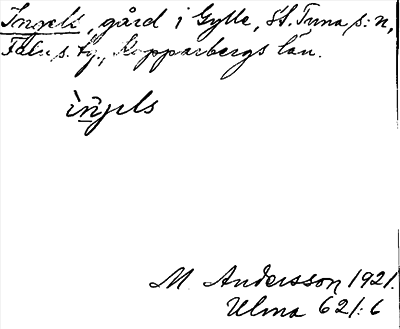 Ingels, gård i Gylle, St. Tuna s:n,
Falu s. ty., Kopparbergs län.
ìngels
M. Andersson 1921.
Ulma 621:6